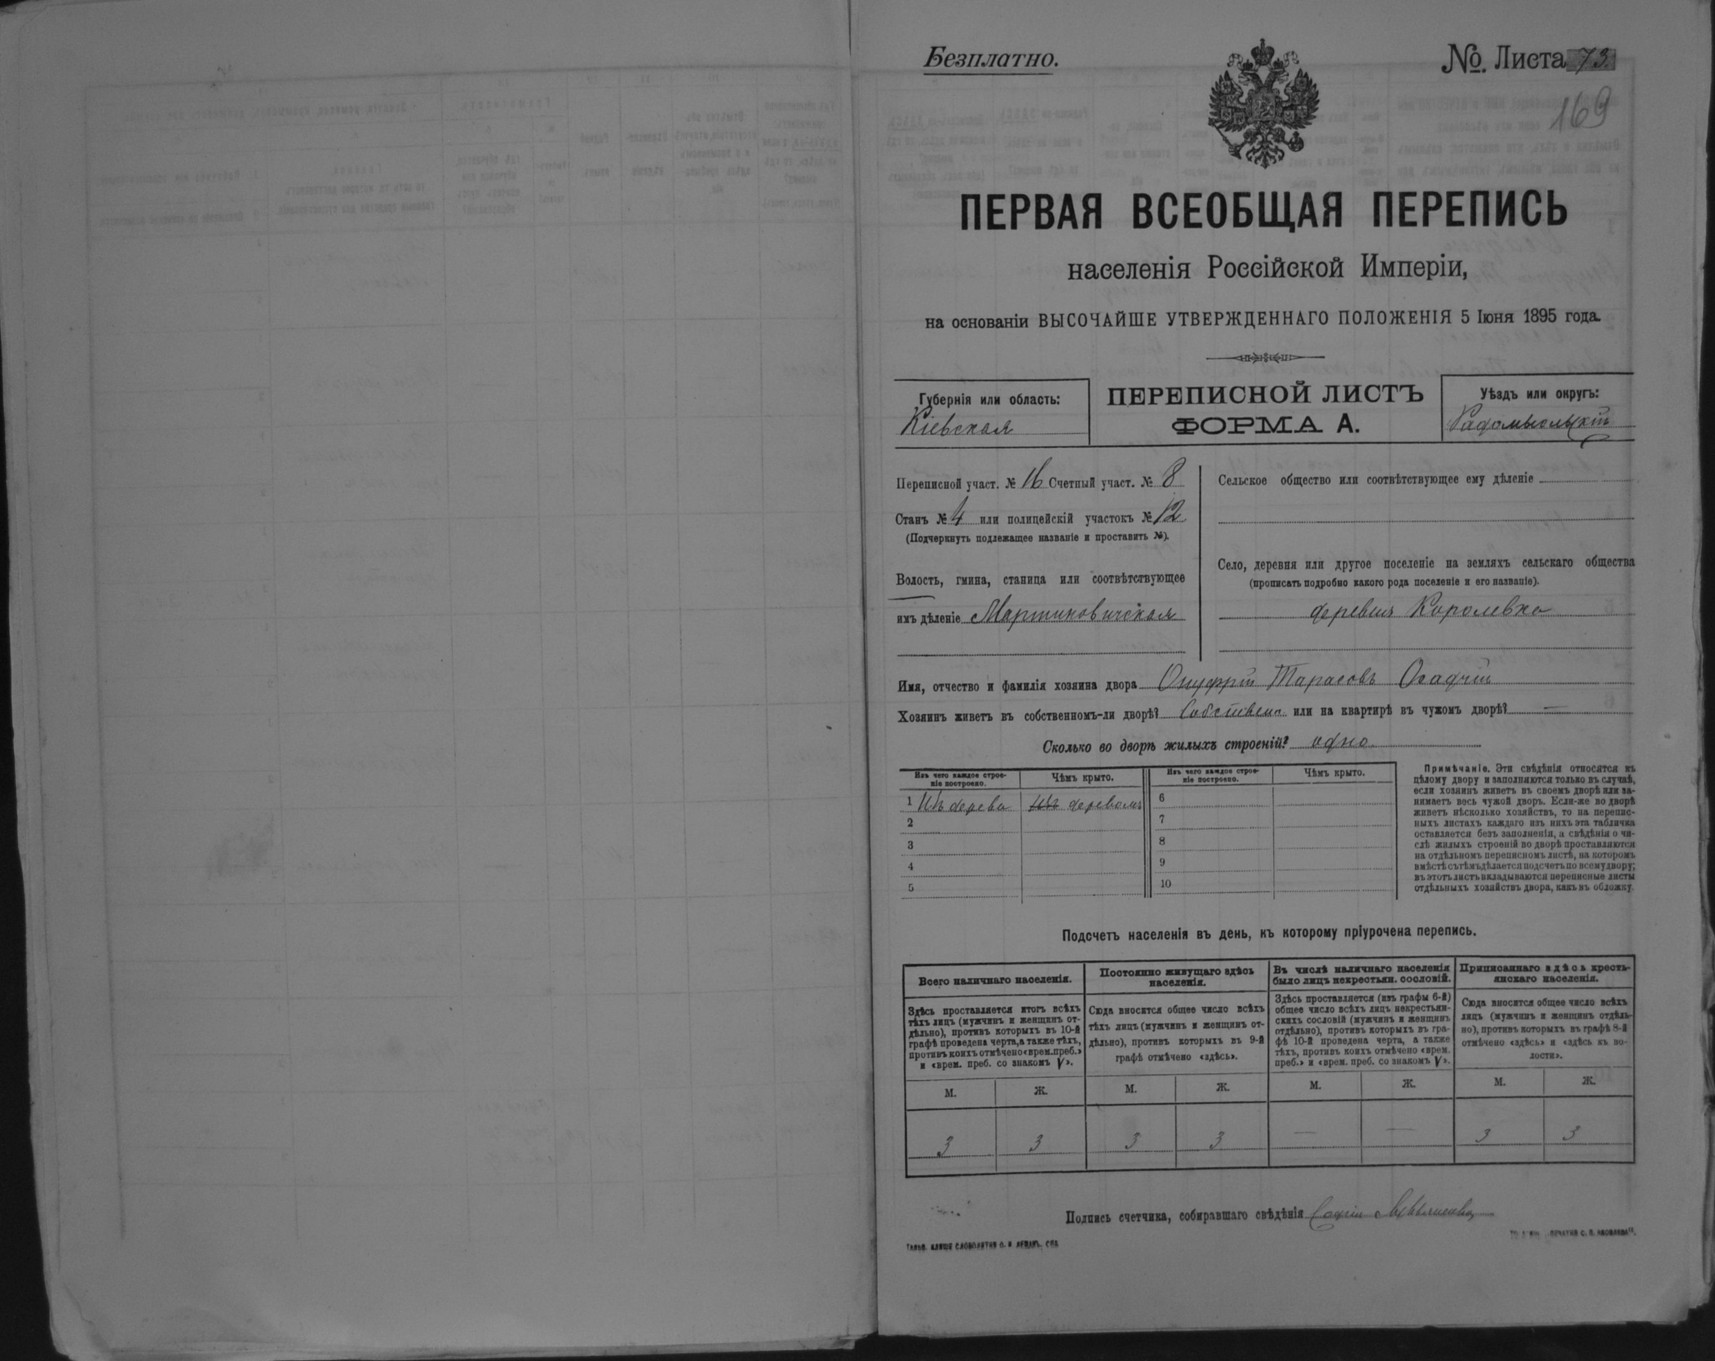 Безплатно.
№ Листа 73
169
ПЕРВАЯ ВСЕОБЩАЯ ПЕРЕПИСЬ
населенія Россійской Имперіи,
на основаніи ВЫСОЧАЙШЕ УТВЕРЖДЕННАГО ПОЛОЖЕНІЯ 5 Іюня 1895 года.
Губернія или область:
Кіевская
ПЕРЕПИСНОЙ ЛИСТЪ
ФОРМА А.
Уѣздъ или округъ:
Радомысльскій
Переписной участ. № 16 Счетный участ. № 8
Станъ № 4 или полицейскій участокъ № 12
(Подчеркнуть подлежащее названіе и проставить №).
Волость, гмина, станица или соотвѣтствующее
имъ дѣленіе Мартиновичская
Сельское общество или соотвѣтствующее ему дѣленіе
Село, деревня или другое поселеніе на земляхъ сельскаго общества
(прописать подробно какого рода поселеніе и его названіе).
деревня Королевка
Имя, отчество и фамилія хозяина двора Онуфрій Тарасовъ Осадчій
Хозяинъ живетъ въ собственномъ-ли дворѣ? Собствен. или на квартирѣ въ чужомъ дворѣ? —
Сколько во дворѣ жилыхъ строеній? одно
Изъ чего каждое строе-
ніе построено.
Чѣмъ крыто.
Изъ чего каждое строе-
ніе построено.
Чѣмъ крыто.
1 Изъ дерева деревомъ 6
2 7
3 8
4 9
5 10
Примѣчаніе. Эти свѣдѣнія относятся къ
цѣлому двору и заполняются только въ случаѣ,
если хозяинъ живетъ въ своемъ дворѣ или за-
нимаетъ весь чужой дворъ. Если-же во дворѣ
живетъ нѣсколько хозяйствъ, то на перепис-
ныхъ листахъ каждаго изъ нихъ эта табличка
оставляется безъ заполненія, а свѣдѣнія о чи-
слѣ жилыхъ строеній во дворѣ проставляются
на отдѣльномъ переписномъ листѣ, на которомъ
вмѣстѣ съ тѣмъ дѣлается подсчетъ по всему двору;
въ этотъ листъ вкладываются переписные листы
отдѣльныхъ хозяйствъ двора, какъ въ обложку.
Подсчетъ населенія въ день, къ которому пріурочена перепись.
Всего наличнаго населенія.
Здѣсь проставляется итогъ всѣхъ
тѣхъ лицъ (мужчинъ и женщинъ от-
дѣльно), противъ которыхъ въ 10-й
графѣ проведена черта, а также тѣхъ,
противъ коихъ отмѣчено «врем. преб.»
и «врем. преб. со знакомъ V».
Постоянно живущаго здѣсь
населенія.
Сюда вносится общее число всѣхъ
тѣхъ лицъ (мужчинъ и женщинъ от-
дѣльно), противъ которыхъ въ 9-й
графѣ отмѣчено «здѣсь».
Въ числѣ наличнаго населенія
было лицъ некрестьян. сословій.
Здѣсь проставляется (изъ графы 6-й)
общее число всѣхъ лицъ некрестьян-
скихъ сословій (мужчинъ и женщинъ
отдѣльно), противъ которыхъ въ гра-
фѣ 10-й проведена черта, а также
тѣхъ, противъ коихъ отмѣчено «врем.
преб.» и «врем. преб. со знакомъ V».
Приписаннаго здѣсь кресть-
янскаго населенія.
Сюда вносится общее число всѣхъ
лицъ (мужчинъ и женщинъ отдѣль-
но), противъ которыхъ въ графѣ 8-й
отмѣчено «здѣсь» и «здѣсь къ во-
лости».
М. Ж. М. Ж. М. Ж. М. Ж.
3 3 3 3 — — 3 3
Подпись счетчика, собиравшаго свѣдѣнія